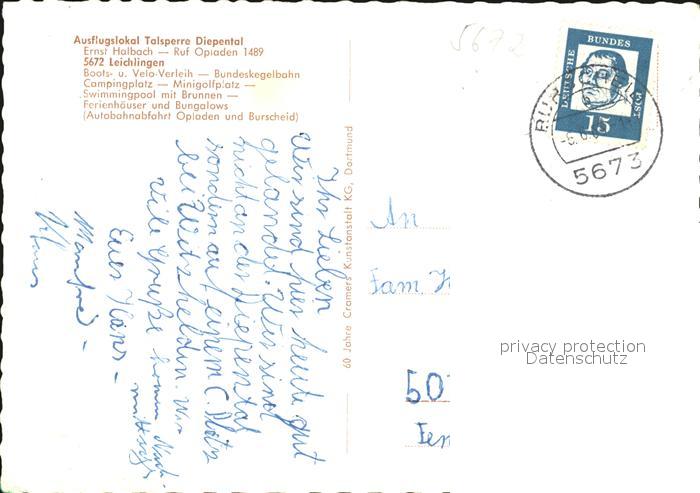 Ausflugslokal Talsperre Diepental
Ernst Halbach — Ruf Opladen 1489
5672 Leichlingen
Boots- u. Velo-Verleih — Bundeskegelbahn
Campingplatz — Minigolfplatz —
Swimmingpool mit Brunnen —
Ferienhäuser und Bungalows
(Autobahnabfahrt Opladen und Burscheid)
5672
DEUTSCHE BUNDES POST
15
5673
Ihr Lieben
Wir sind hier heute gut
gelandet. Wir sind
nicht an der Diepental
sondern auf einem C. Platz
bei Witzhelden. Wir
viele Grüße
Euer Hans -
Manfred -
Klaus
60 Jahre Cramers Kunstanstalt KG, Dortmund
An
Fam
50
privacy protection
Datenschutz